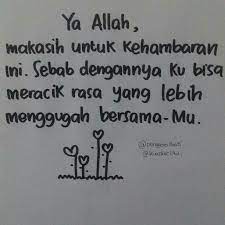 Ya Allah,
makasih untuk Kehambaran
ini. Sebab dengannya Ku bisa
meracik rasa yang lebih
menggugah bersama-Mu.